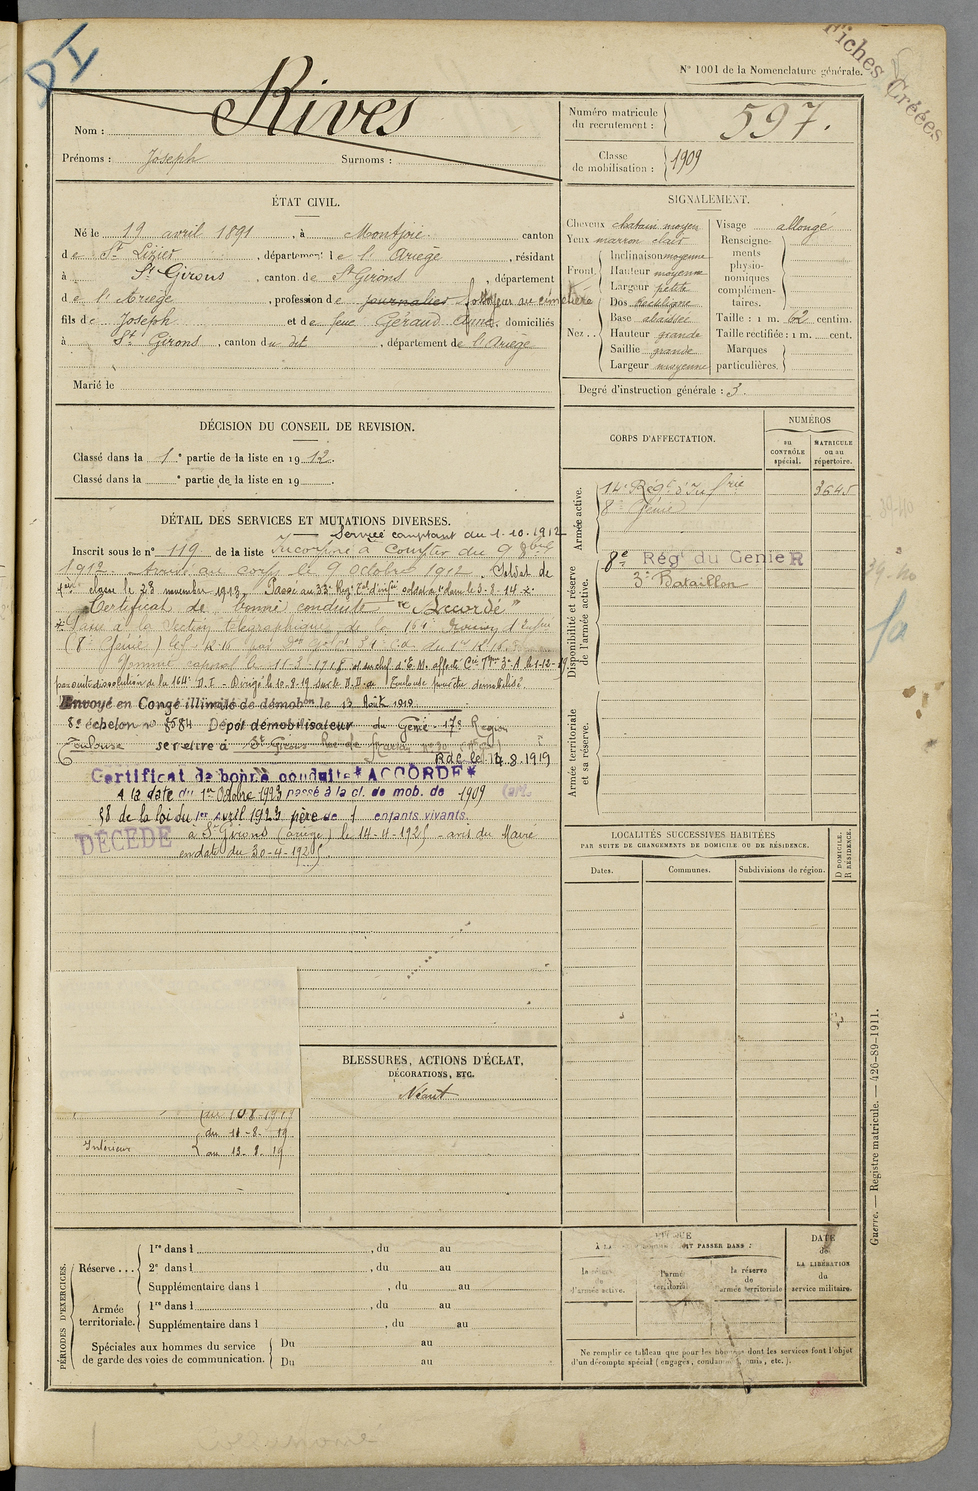 PI
Fiches Créées
N° 1001 de la Nomenclature générale.
Nom : Rives
Prénoms : Joseph Surnoms :
Numéro matricule du recrutement : 597.
Classe de mobilisation : 1909
ÉTAT CIVIL.
Né le 19 avril 1891, à Montjoie canton
de St Lizier, département de l'Ariège, résidant
à St Girons, canton de St Girons, département
de l'Ariège, profession de journalier fossoyeur au cimetière
fils de Joseph et de feue Géraud Anna, domiciliés
à St Girons, canton du dit, département de l'Ariège
Marié le
SIGNALEMENT.
Cheveux chatain moyen
Yeux marron clair
Front. Inclinaison moyenne
Hauteur moyenne
Largeur petite
Nez.. Dos rectiligne
Base abaissée
Hauteur grande
Saillie grande
Largeur moyenne
Visage allongé
Renseignements physionomiques complémentaires.
Taille : 1 m. 62 centim.
Taille rectifiée : 1 m. cent.
Marques particulières.
Degré d'instruction générale : 3.
DÉCISION DU CONSEIL DE REVISION.
Classé dans la 1e partie de la liste en 1912.
Classé dans la e partie de la liste en 19
CORPS D'AFFECTATION.
NUMÉROS
au CONTRÔLE spécial.
MATRICULE ou au répertoire.
Armée active.
14e Régt d'Infrie 3645
8e Génie
Disponibilité et réserve de l'armée active.
8e Régt du Génie R
3e Bataillon
Armée territoriale et sa réserve.
DÉTAIL DES SERVICES ET MUTATIONS DIVERSES.
Service comptant du 1-10-1912
Inscrit sous le n° 119 de la liste Incorporé à compter du 9 8bre
1912. Arrivé au corps le 9 octobre 1912. Soldat de
1ère classe le 28 novembre 1913. Passé au 33e Régt
Certificat de bonne conduite "Accordé"
Passé à la Section télégraphique de la 164
(8e Génie)
Nommé caporal le 11-3-1918
par suite dissolution de la 164e D.I. - Dirigé le 10.8.19 sur le D.D. de Toulouse pour être démobilisé.
Envoyé en Congé illimité de démobon le 13 Août 1919
8e échelon n° 8584 Dépôt démobilisateur du Génie 17e Région
Toulouse se retire à St Girons Rue de
RdC le 14.8.1919
Certificat de bonne conduite "ACCORDÉ"
A la date du 1er Octobre 1923 passé à la cl. de mob. de 1909 (art.
58 de la loi du 1er avril 1923 père de 1 enfants vivants.
DÉCÉDÉ à St Girons (Ariège) le 14-4-1925 - avis du Maire
en date du 30-4-1925.
LOCALITÉS SUCCESSIVES HABITÉES
PAR SUITE DE CHANGEMENTS DE DOMICILE OU DE RÉSIDENCE.
Dates.
Communes.
Subdivisions de région.
D DOMICILE. R RÉSIDENCE.
BLESSURES, ACTIONS D'ÉCLAT,
DÉCORATIONS, ETC.
Néant
du 11-8-19
Intérieur au 13.8.19
PÉRIODES D'EXERCICES.
Réserve... 1re dans l , du au
2e dans l , du au
Supplémentaire dans l , du au
Armée territoriale. 1re dans l , du au
Supplémentaire dans l , du au
Spéciales aux hommes du service de garde des voies de communication. Du au
Du au
DATE de LA LIBÉRATION du service militaire.
l'armée territoriale
la réserve de l'armée territoriale
Ne remplir ce tableau que pour les hommes dont les services font l'objet
d'un décompte spécial (engagés, omis, etc.).
Guerre. — Registre matricule. — 426-89-1911.